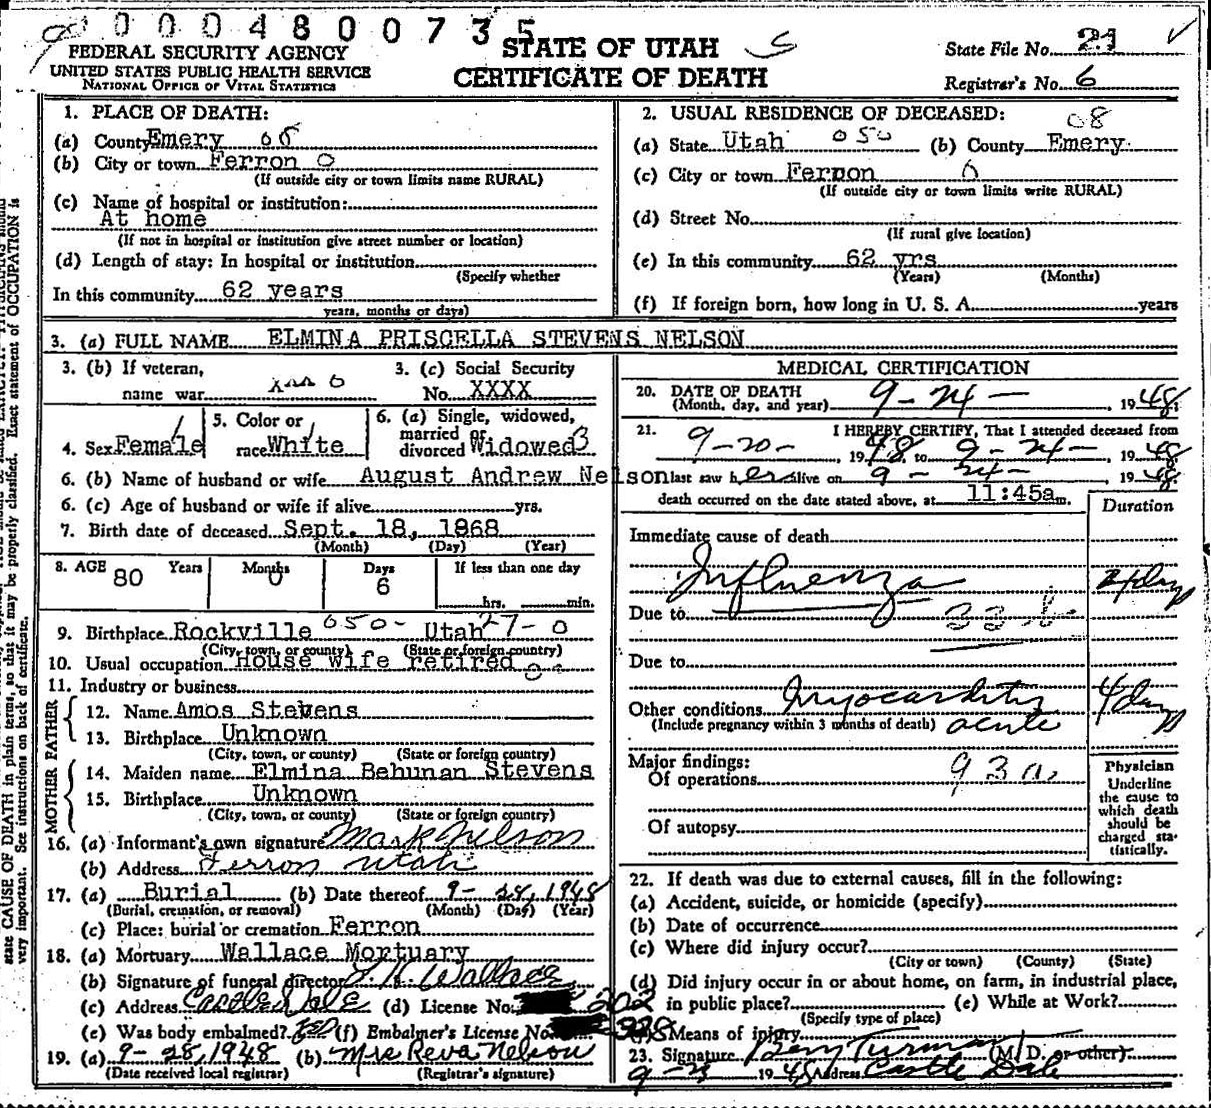 0 0 0 4 8 0 0 7 3 5
FEDERAL SECURITY AGENCY
UNITED STATES PUBLIC HEALTH SERVICE
NATIONAL OFFICE OF VITAL STATISTICS
STATE OF UTAH
CERTIFICATE OF DEATH
State File No. 21
Registrar's No. 6
1. PLACE OF DEATH:
(a) County Emery
(b) City or town Ferron 0
(If outside city or town limits name RURAL)
(c) Name of hospital or institution:
At home
(If not in hospital or institution give street number or location)
(d) Length of stay: In hospital or institution
(Specify whether
In this community 62 years
years, months or days)
2. USUAL RESIDENCE OF DECEASED:
08
(a) State Utah 050 (b) County Emery
(c) City or town Ferron
(If outside city or town limits write RURAL)
(d) Street No.
(If rural give location)
(e) In this community 62 yrs
(Years) (Months)
(f) If foreign born, how long in U. S. A. years
3. (a) FULL NAME ELMINA PRISCELLA STEVENS NELSON
3. (b) If veteran,
name war
3. (c) Social Security
No. XXXX
4. Sex Female
5. Color or
race White
6. (a) Single, widowed,
married or
divorced Widowed 3
6. (b) Name of husband or wife August Andrew Nelson
6. (c) Age of husband or wife if alive yrs.
7. Birth date of deceased Sept. 18, 1868
(Month) (Day) (Year)
8. AGE 80 Years Months 0 Days 6 If less than one day
hrs. min.
9. Birthplace Rockville 050- Utah 27-0
(City, town, or county) (State or foreign country)
10. Usual occupation House wife retired
11. Industry or business
FATHER
12. Name Amos Stevens
13. Birthplace Unknown
(City, town, or county) (State or foreign country)
MOTHER
14. Maiden name Elmina Behunan Stevens
15. Birthplace Unknown
(City, town, or county) (State or foreign country)
16. (a) Informant's own signature Mark Nelson
(b) Address Ferron Utah
17. (a) Burial (b) Date thereof 9- 28, 1948
(Burial, cremation, or removal) (Month) (Day) (Year)
(c) Place: burial or cremation Ferron
18. (a) Mortuary Wallace Mortuary
(b) Signature of funeral director Wallace
(c) Address Castle Dale (d) License No. 202
(e) Was body embalmed? (f) Embalmer's License No. 338
19. (a) 9-28, 1948 (b) Mrs Reva Nelson
(Date received local registrar) (Registrar's signature)
MEDICAL CERTIFICATION
20. DATE OF DEATH
(Month, day, and year) 9-24- , 1948
21. I HEREBY CERTIFY, That I attended deceased from
9-20- , 1948, to 9-24- , 1948
last saw her alive on 9-24- , 1948
death occurred on the date stated above, at 11:45a m.
Duration
Immediate cause of death
Influenza
Due to 33 b
Due to
Other conditions Myocarditis 4 days
(Include pregnancy within 3 months of death) acute
Major findings: 93a
Of operations
Of autopsy
Physician
Underline
the cause to
which death
should be
charged sta-
tistically.
22. If death was due to external causes, fill in the following:
(a) Accident, suicide, or homicide (specify)
(b) Date of occurrence
(c) Where did injury occur?
(City or town) (County) (State)
(d) Did injury occur in or about home, on farm, in industrial place,
in public place? (e) While at Work?
(Specify type of place)
Means of injury
23. Signature Turman (M. D. or other)
1948 Address Castle Dale
state CAUSE OF DEATH in plain terms, so that it may be properly classified. Exact statement of OCCUPATION is
very important. See instructions on back of certificate.